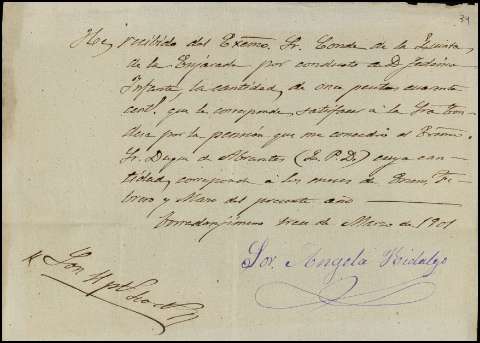 34
He recibido del Exčmo. Sr. Conde de la Quinta
de la Enjarada por conducto de D. Federico
Infante, la cantidad, de once pesetas cuarenta
cent.s que le corresponde satisfacer á la
por la pensión que me concedió el Exčmo.
Sr. Duque de Abrantes (E. P. D.) cuya can-
tidad, corresponde á los meses de Enero, Fe-
brero y Marzo del presente año
Torredonjimeno de Marzo de 1901
Sor. Angela Hidalgo
Son 11 pts